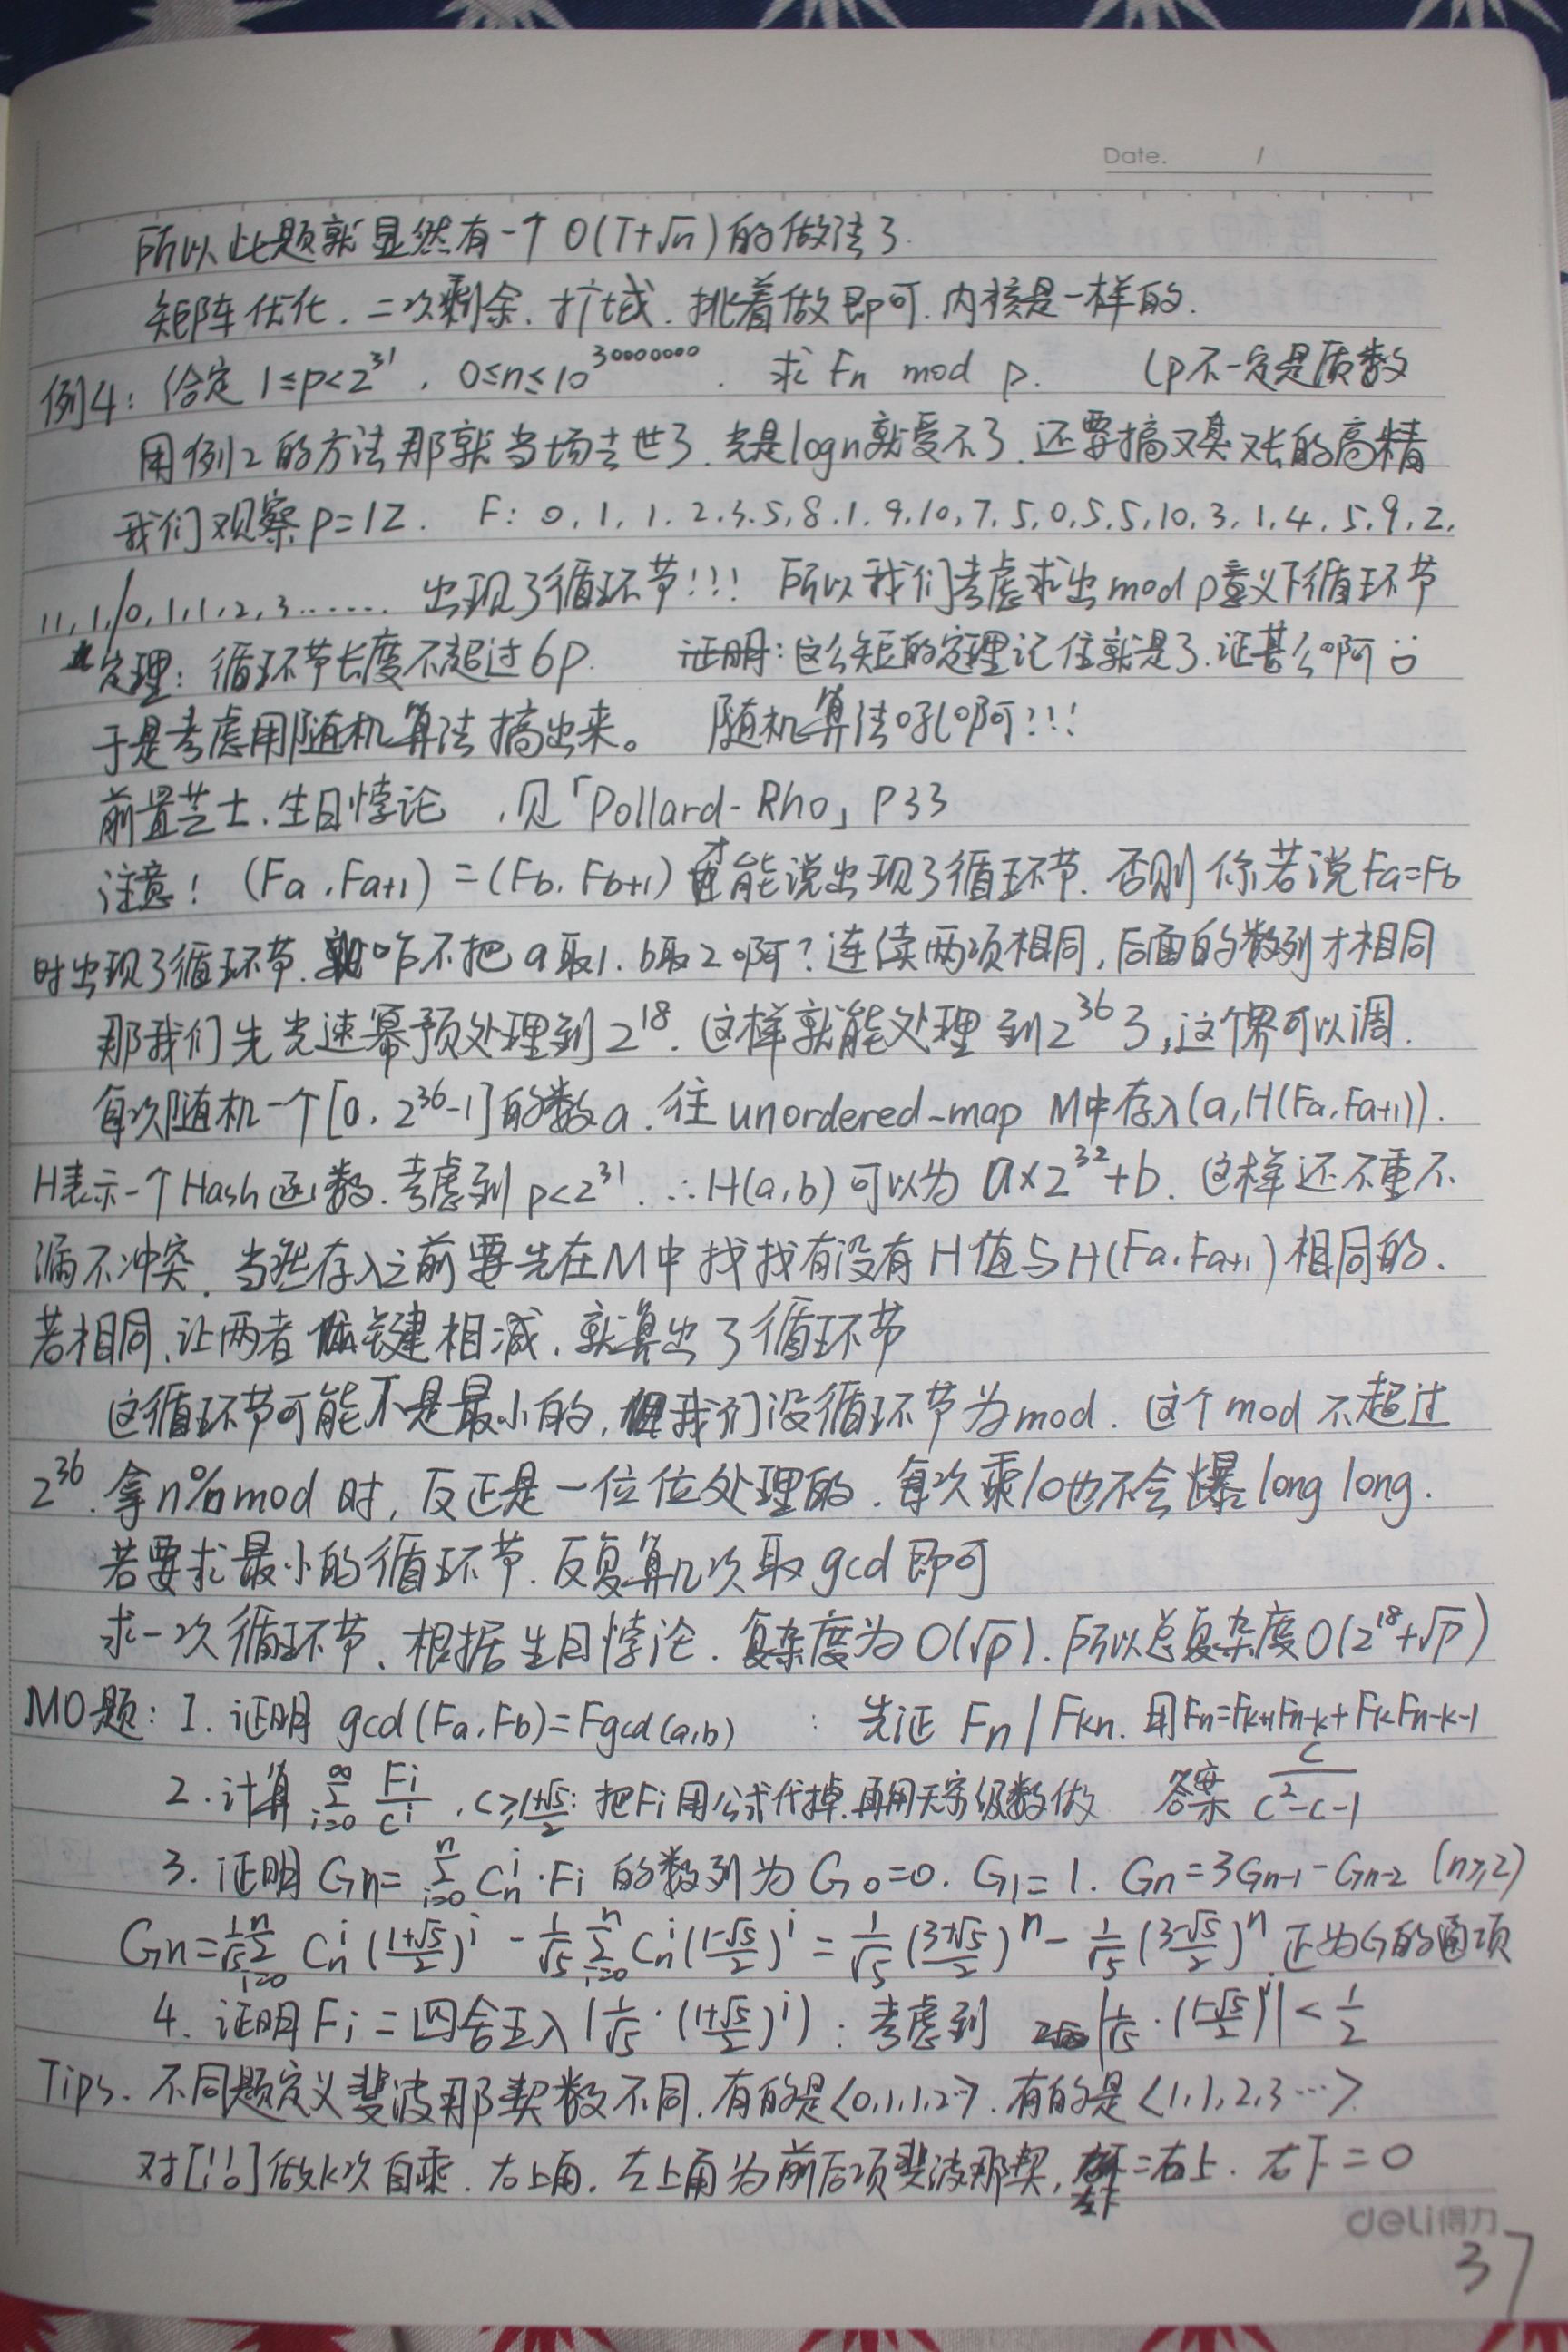 Date. /
所以此题就显然有一个 O(T+√n) 的做法了.
矩阵优化. 二次剩余. 扩域. 挑着做即可. 内核是一样的.
例4: 给定 1≤p<2^31, 0≤n≤10^30000000. 求 Fn mod p. (p不一定是质数
用例2的方法那就当场去世了. 光是logn就受不了. 还要搞又臭又长的高精
我们观察 p=12. F: 0, 1, 1. 2. 3. 5, 8. 1. 9. 10, 7, 5. 0, 5. 5, 10. 3, 1, 4. 5. 9, 2,
11, 1,/0, 1, 1, 2, 3....... 出现了循环节!!! 所以我们考虑求出 mod p意义下循环节
定理: 循环节长度不超过 6p. 证明: 这么短的定理记住就是了. 证甚么啊
于是考虑用随机算法搞出来。 随机算法吼啊!!!
前置芝士. 生日悖论, 见「Pollard-Rho」P33
注意! (Fa, Fa+1) = (Fb, Fb+1) 才能说出现了循环节. 否则你若说Fa=Fb
时出现了循环节. 咋不把 a取1. b取2啊? 连续两项相同, 后面的数列才相同
那我们先光速幂预处理到 2^18. 这样就能处理到 2^36 了, 这个界可以调.
每次随机一个 [0, 2^36-1] 的数a. 往 unordered-map M中存入(a, H(Fa, Fa+1)).
H表示一个 Hash 函数. 考虑到 p<2^31. ∴H(a,b) 可以为 a×2^32+b. 这样还不重不
漏不冲突. 当然存入之前要先在M中找找有没有 H值与H(Fa, Fa+1) 相同的.
若相同, 让两者 关键相减. 就算出了循环节
这循环节可能不是最小的, 但我们设循环节为mod. 这个 mod 不超过
2^36. 拿 n%mod 时, 反正是一位位处理的. 每次乘10也不会爆 long long.
若要求最小的循环节. 反复算几次取 gcd 即可
求一次循环节. 根据生日悖论. 复杂度为 O(√p). 所以总复杂度O(2^18+√p)
MO题: 1. 证明 gcd(Fa, Fb)=Fgcd(a,b) : 先证 Fn | Fkn. 用Fn=Fk+1Fn-k+FkFn-k-1
2. 计算 ∑_{i=0}^{∞} Fi/c^i, c≥(1+√5)/2: 把Fi用公式代掉. 再用无穷级数做 答案 c/(c^2-c-1)
3. 证明 Gn= ∑_{i=0}^{n} C_n^i·Fi 的数列为 G0=0. G1=1. Gn=3Gn-1-Gn-2 (n≥2)
Gn=1/√5 ∑_{i=0}^{n} C_n^i ((1+√5)/2)^i - 1/√5 ∑_{i=0}^{n} C_n^i ((1-√5)/2)^i = 1/√5 ((3+√5)/2)^n - 1/√5 ((3-√5)/2)^n. 正为G的通项
4. 证明 Fi = 四舍五入(1/√5·((1+√5)/2)^i): 考虑到 |1/√5·((1-√5)/2)^i| < 1/2
Tips. 不同题定义斐波那契数不同. 有的是<0,1,1,2…>. 有的是<1,1,2,3…>.
对[1 1 1 0]做k次自乘. 右上角. 左上角为前后项斐波那契, 左下=右上. 右下=0
deli得力
37